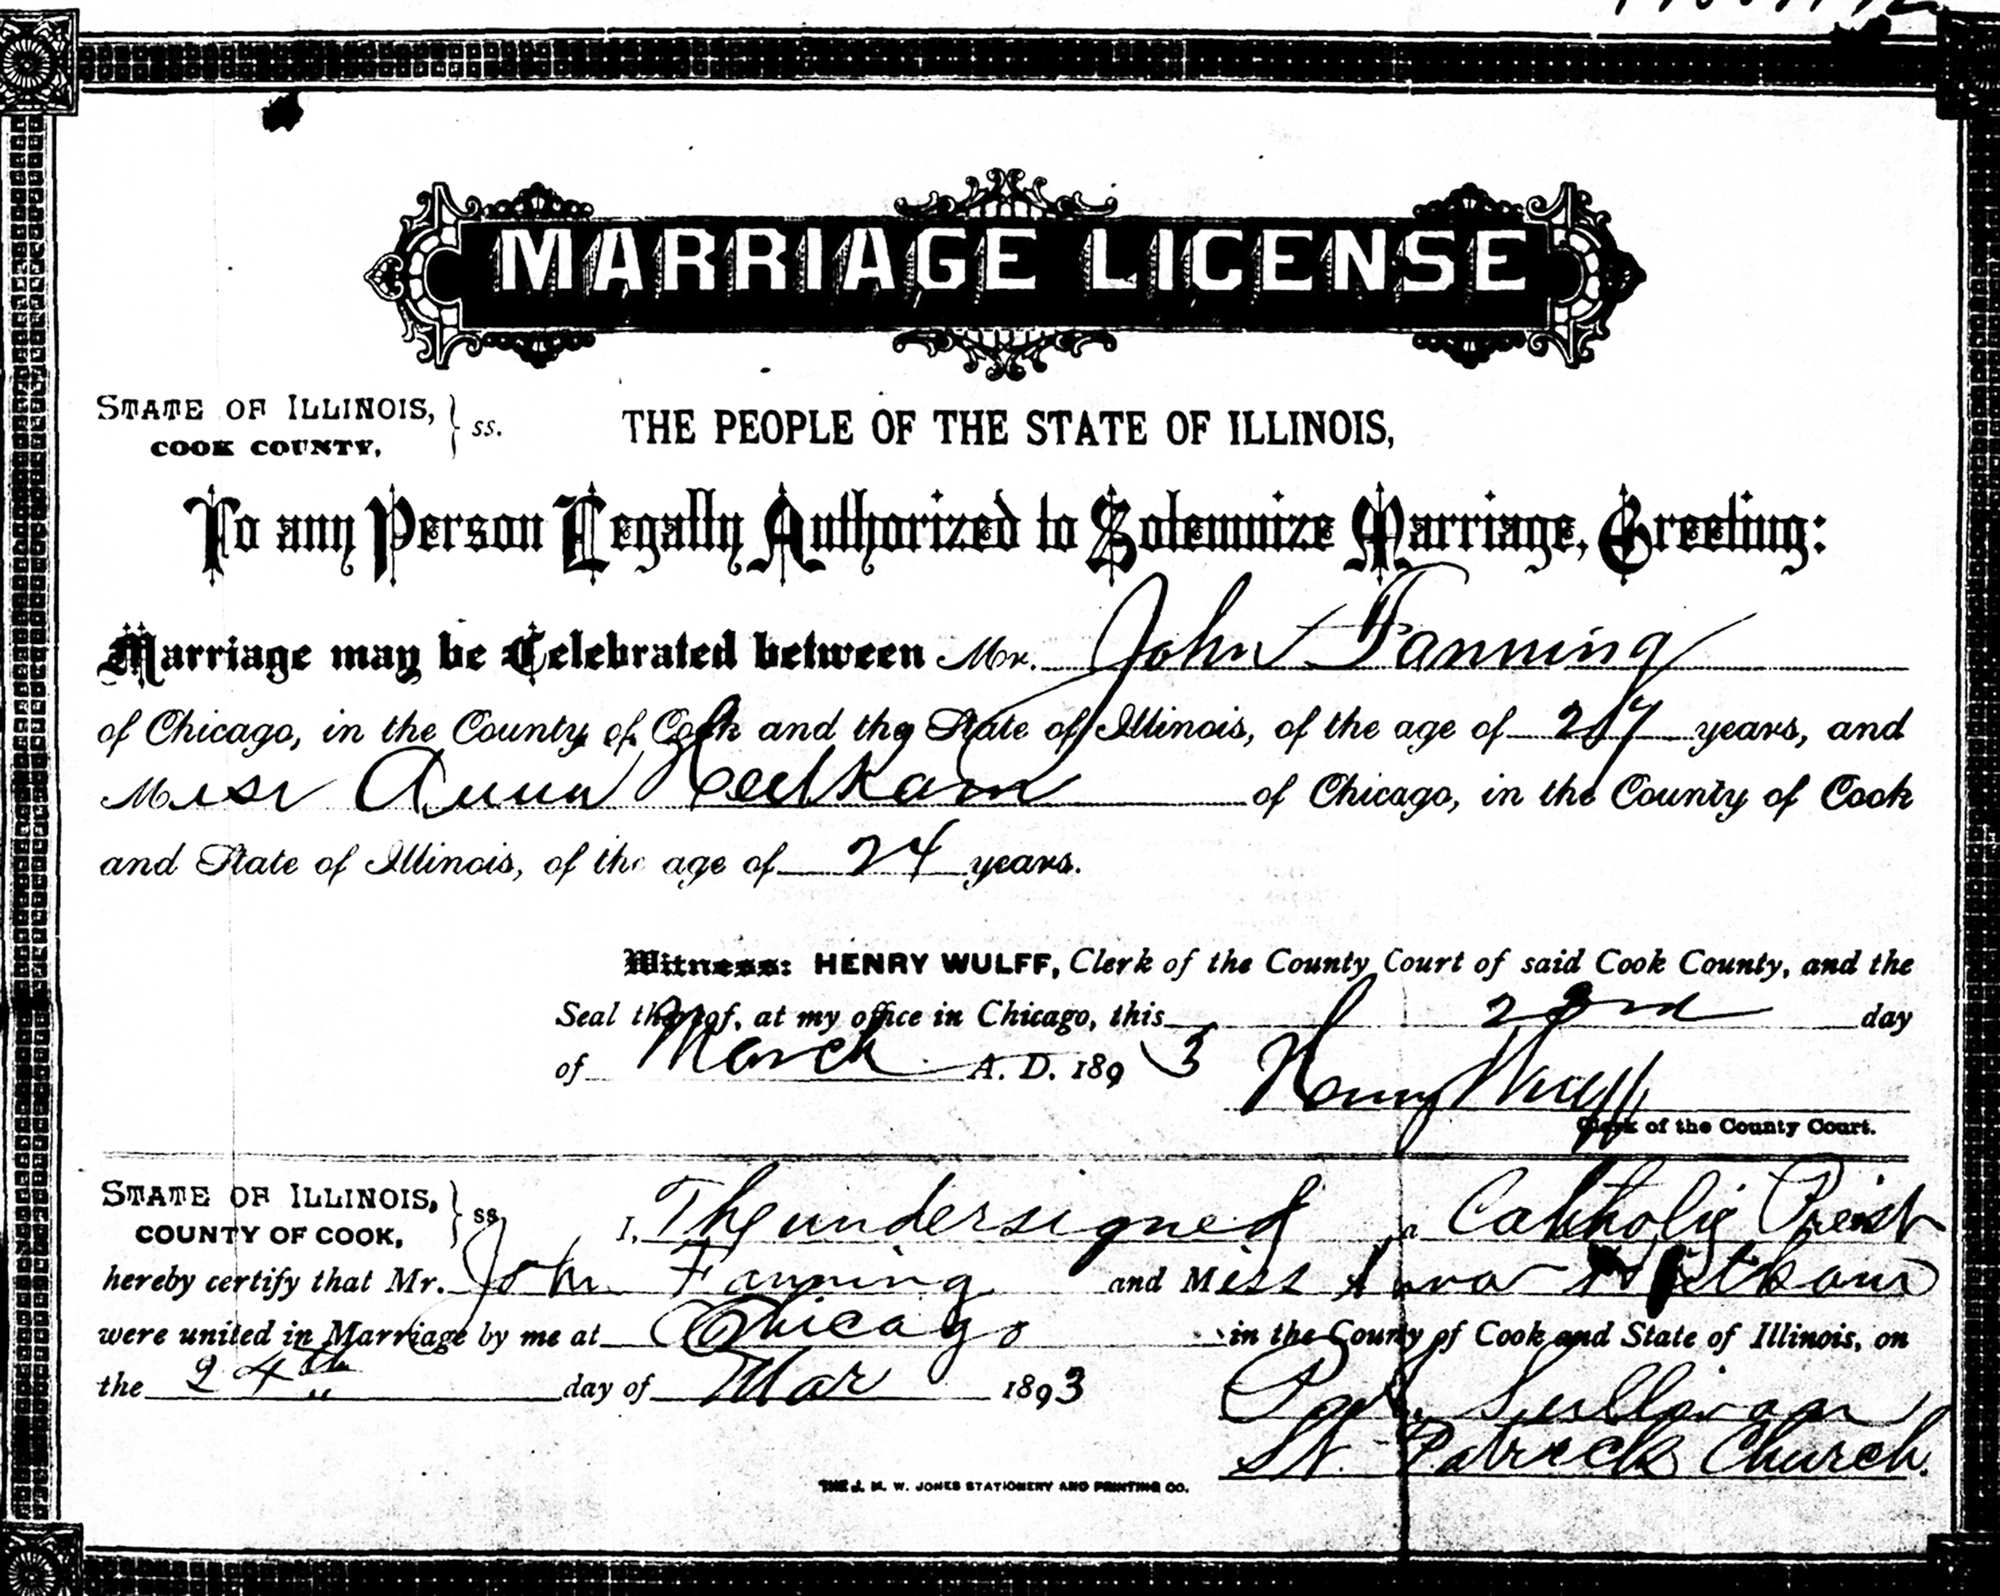 MARRIAGE LICENSE
STATE OF ILLINOIS, } ss.
COOK COUNTY,
THE PEOPLE OF THE STATE OF ILLINOIS,
To any Person Legally Authorized to Solemnize Marriage, Greeting:
Marriage may be Celebrated between Mr. John Fanning
of Chicago, in the County of Cook and the State of Illinois, of the age of 27 years, and
Miss Anna of Chicago, in the County of Cook
and State of Illinois, of the age of 24 years.
Witness: HENRY WULFF, Clerk of the County Court of said Cook County, and the
Seal thereof, at my office in Chicago, this 23rd day
of March A. D. 1893
Henry Wulff
Clerk of the County Court.
STATE OF ILLINOIS, } ss
COUNTY OF COOK,
I, The undersigned a Catholic Priest
hereby certify that Mr. John Fanning and Miss Anna
were united in Marriage by me at Chicago in the County of Cook and State of Illinois, on
the 24th day of Mar 1893
Sullivan
St. Patrick Church.
THE J. M. W. JONES STATIONERY AND PRINTING CO.